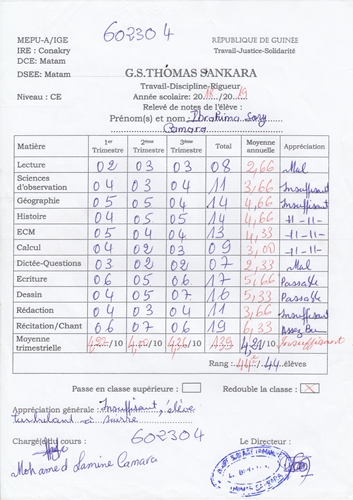 MEPU-A/IGE
602304
RÉPUBLIQUE DE GUINÉE
IRE : Conakry
Travail-Justice-Solidarité
DCE: Matam
DSEE: Matam
G.S.THOMAS SANKARA
Travail-Discipline-Rigueur
Niveau : CE
Année scolaire: 2018/2019
Relevé de notes de l'élève :
Prénom(s) et nom : Ibrahima Sory
Camara
Matière 1er Trimestre 2ème Trimestre 3ème Trimestre Total Moyenne annuelle Appréciation
Lecture 02 03 03 08 2,66 Mal
Sciences d'observation 04 03 04 11 3,66 Insuffisant
Géographie 05 05 04 14 4,66 Insuffisant
Histoire 04 05 05 14 4,66 -11-11-
ECM 05 04 04 13 4,33 -11-11-
Calcul 04 02 03 09 3,00 -11-11-
Dictée-Questions 03 02 02 07 2,33 Mal
Ecriture 06 05 06 17 5,66 Passable
Dessin 04 05 07 16 5,33 Passable
Rédaction 04 03 04 11 3,66 Insuffisant
Récitation/Chant 06 07 06 19 6,33 Assez Bien
Moyenne trimestrielle /10 /10 /10 139 4,21/10 Insuffisant
Rang : 44e/44 élèves
Passe en classe supérieure :
Redouble la classe : X
Appréciation générale : Insuffisant, élève
Chargé(s) du cours :
602304
Le Directeur :
Mohamed Lamine Camara